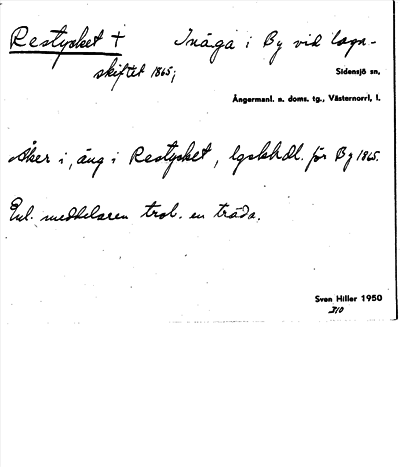 Restycket † Inäga i By vid laga-
skiftet 1865;
Sidensjö sn,
Ångermanl. n. doms. tg., Västernorrl, l.
Åker i, äng i Restycket, lgskhdl. för By 1865.
Enl. meddelaren trol. en träda.
Sven Hiller 1950
310